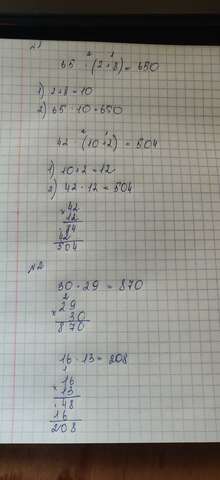 2)
2 1
65 · (2+8) = 650
1) 2+8=10
2) 65 · 10=650
2 1
42 · (10+2) = 504
1) 10+2=12
2) 42 · 12 = 504
× 42
12
84
42
504
№2
30 · 29 = 870
2
× 29
30
870
16 · 13 = 208
1
× 16
13
48
16
208